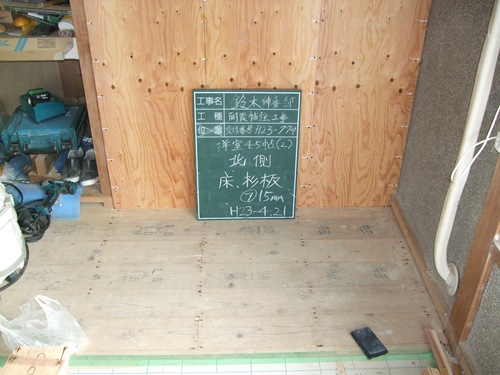 工事名 鈴木
工種 耐震補強工事
位置 交付番号 H23-774
洋室4.5帖(2)
北側
床、杉板
⑦15mm
H23-4.21